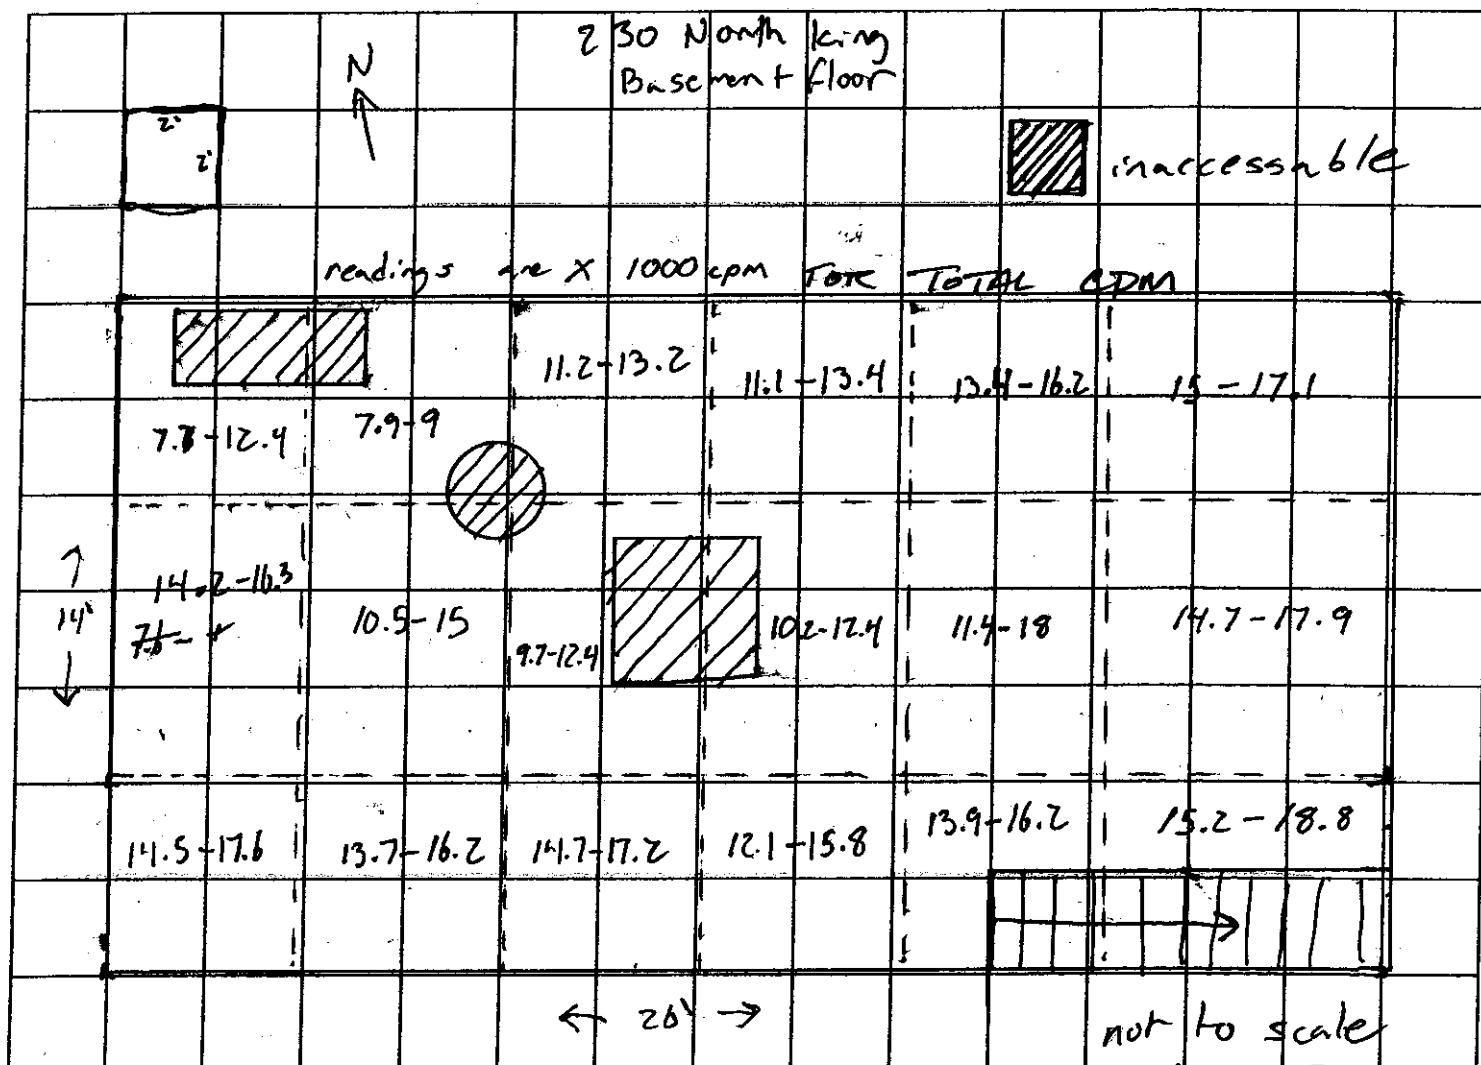 230 North King
Basement floor
N
2'
2'
inaccessable
readings are X 1000 cpm FOR TOTAL CPM
11.2-13.2
11.1-13.4
13.4-16.2
15-17.1
7.9-9
14.2-16.3
14'
10.5-15
9.7-12.4
10.2-12.4
11.4-18
14.7-17.9
14.5-17.6
13.7-16.2
14.7-17.2
12.1-15.8
13.9-16.2
15.2-18.8
not to scale